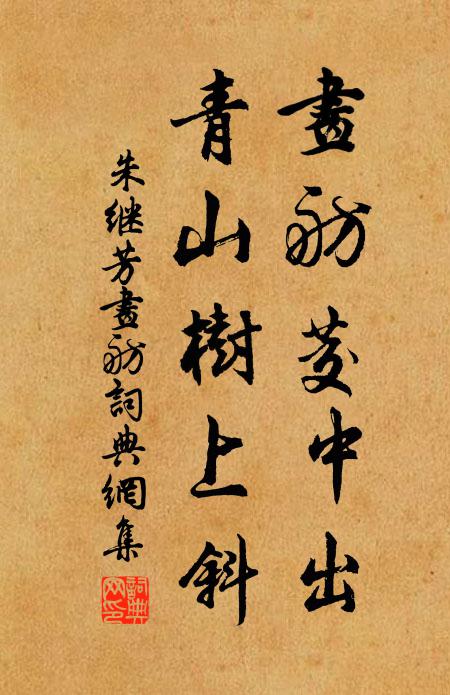 畫舫菱中出
青山樹上斜
朱继芳畫舫詞典網集
詞典網印